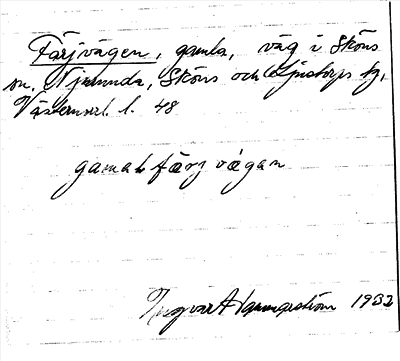 Färjvägen, gamla, väg i Sköns
sn. Njurunda, Sköns och Ljustorps tg,
Västernorrl. l. 48
gamal färj vägan
Ingvar Hammarström 1932